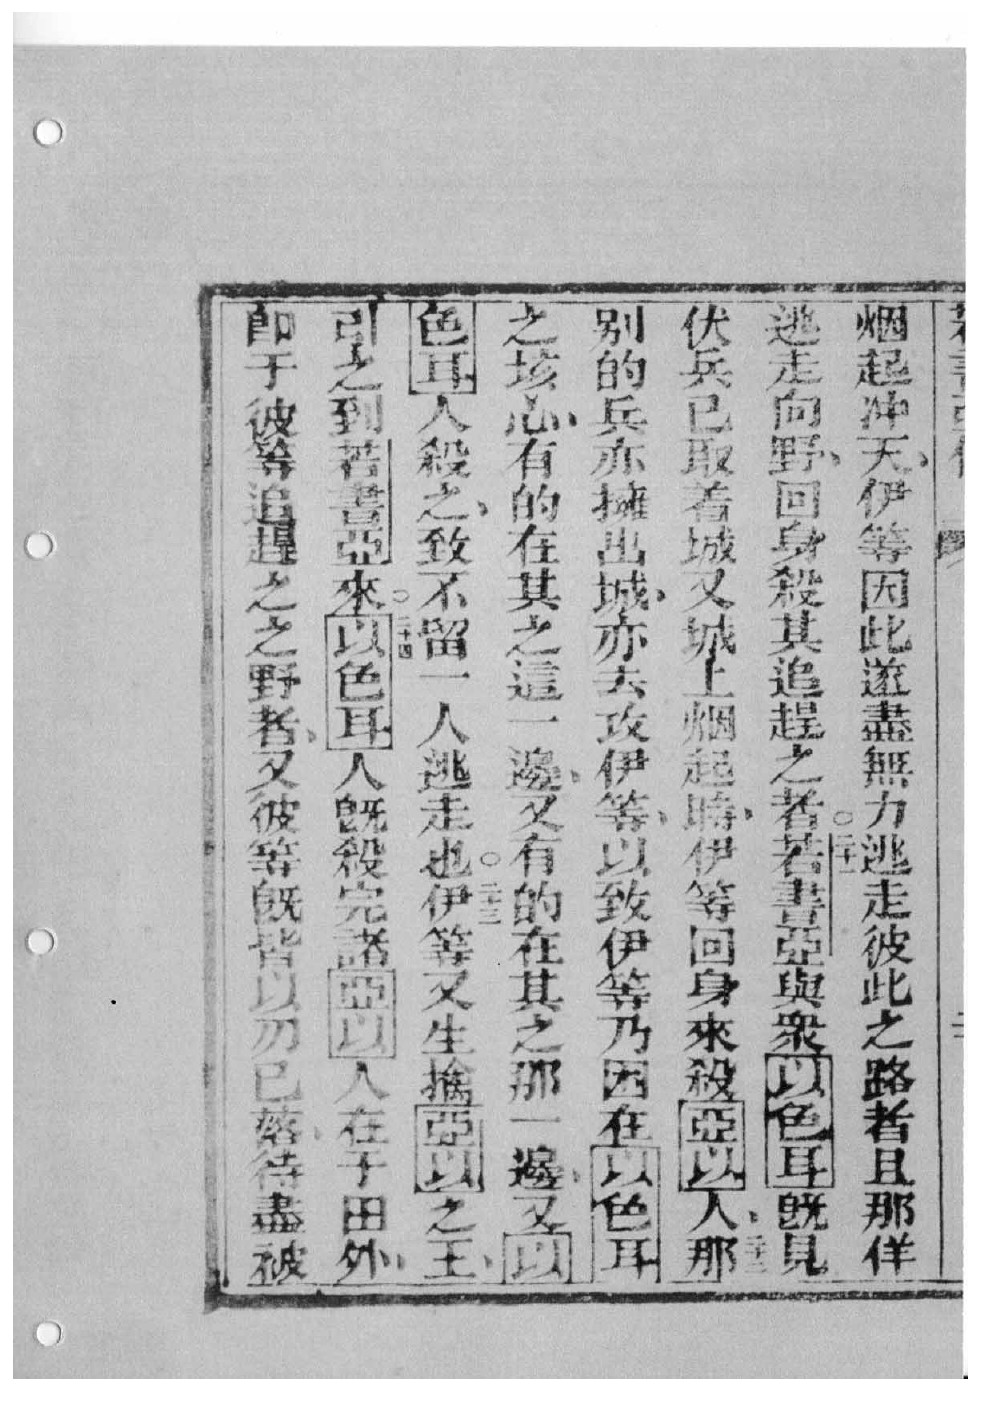 烟起冲天、伊等因此遂盡無力逃走彼此之路者且那佯
逃走向野、回身殺其追趕之者○二十一若書亞與衆以色耳既見
伏兵已取着城又城上烟起時、伊等回身來殺亞以人、二十二那
別的兵亦擁出城、亦去攻伊等、以致伊等乃因在以色耳
之垓心、有的在其之這一邊、又有的在其之那一邊、又以
色耳人殺之、致不留一人逃走也○二十三伊等又生擒亞以之王、
引之到若書亞來○二十四以色耳人既殺完諸亞以人在于田外、
卽于彼等追趕之之野者、又彼等既皆以刃已落、待盡被